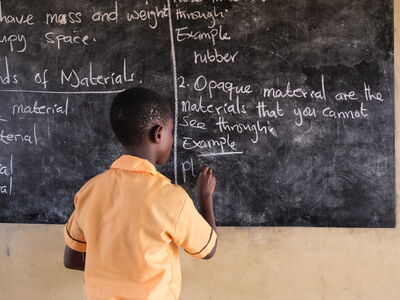 have mass and weight
occupy space.
Kinds of Materials.
material
material
see through
Example
rubber
2. Opaque material are the
materials that you cannot
see through.
Example
pl